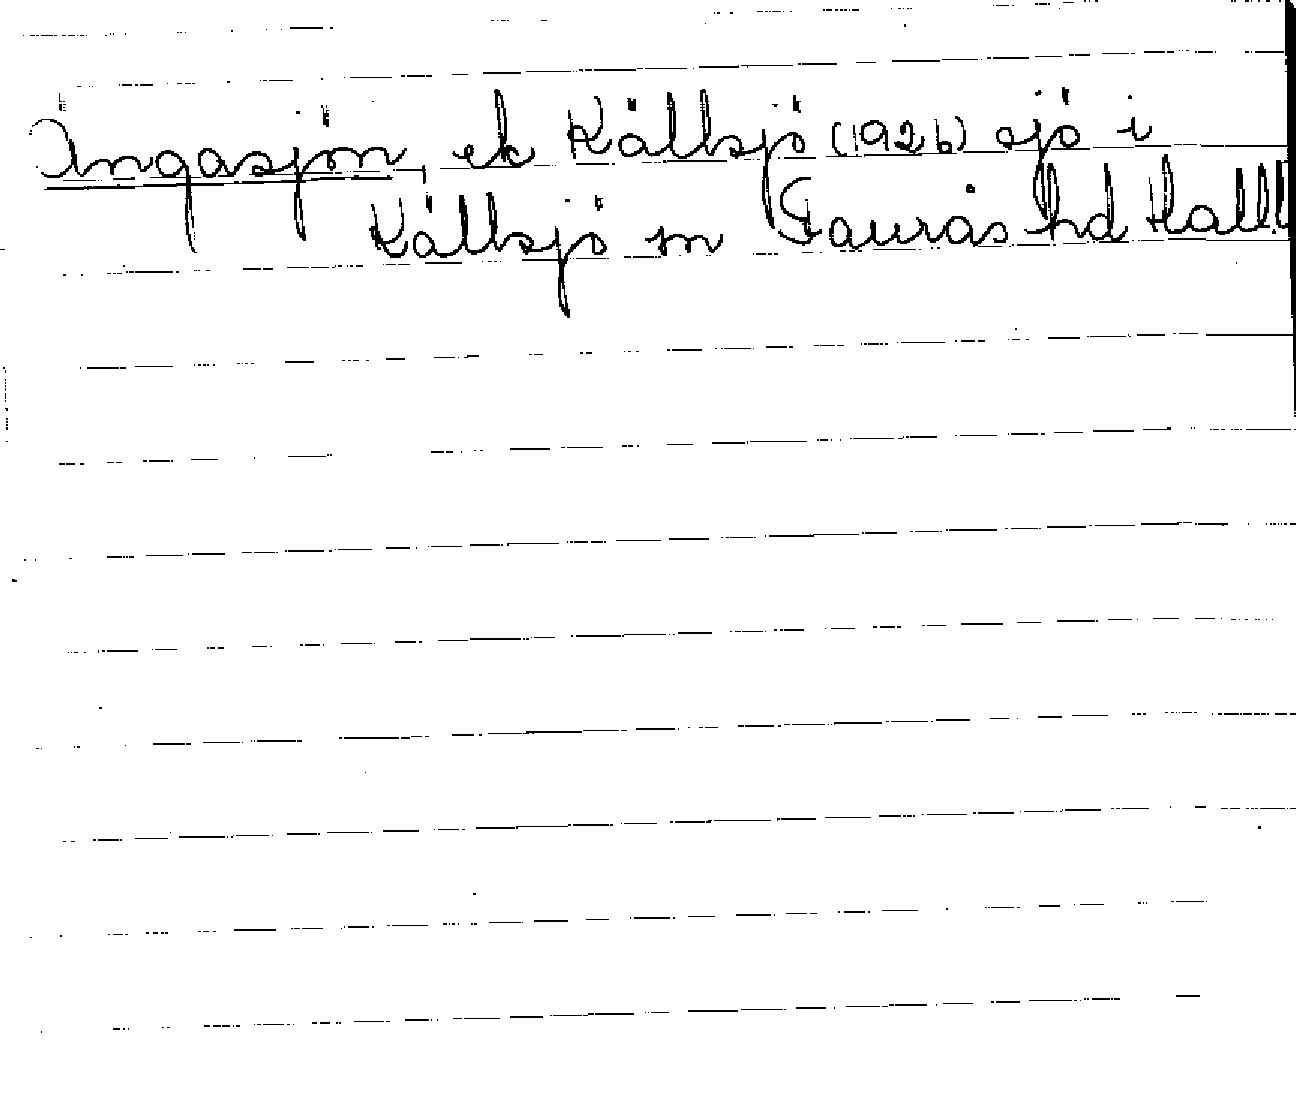 Ingasjön, ek Källsjö (1926) sjö i
Källsjö sn Faurås hd Hall